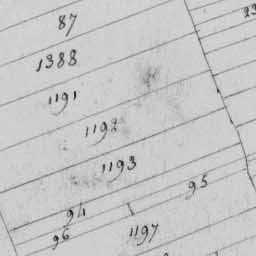 87
1388
1191
1192
1193
95
94
96
1197